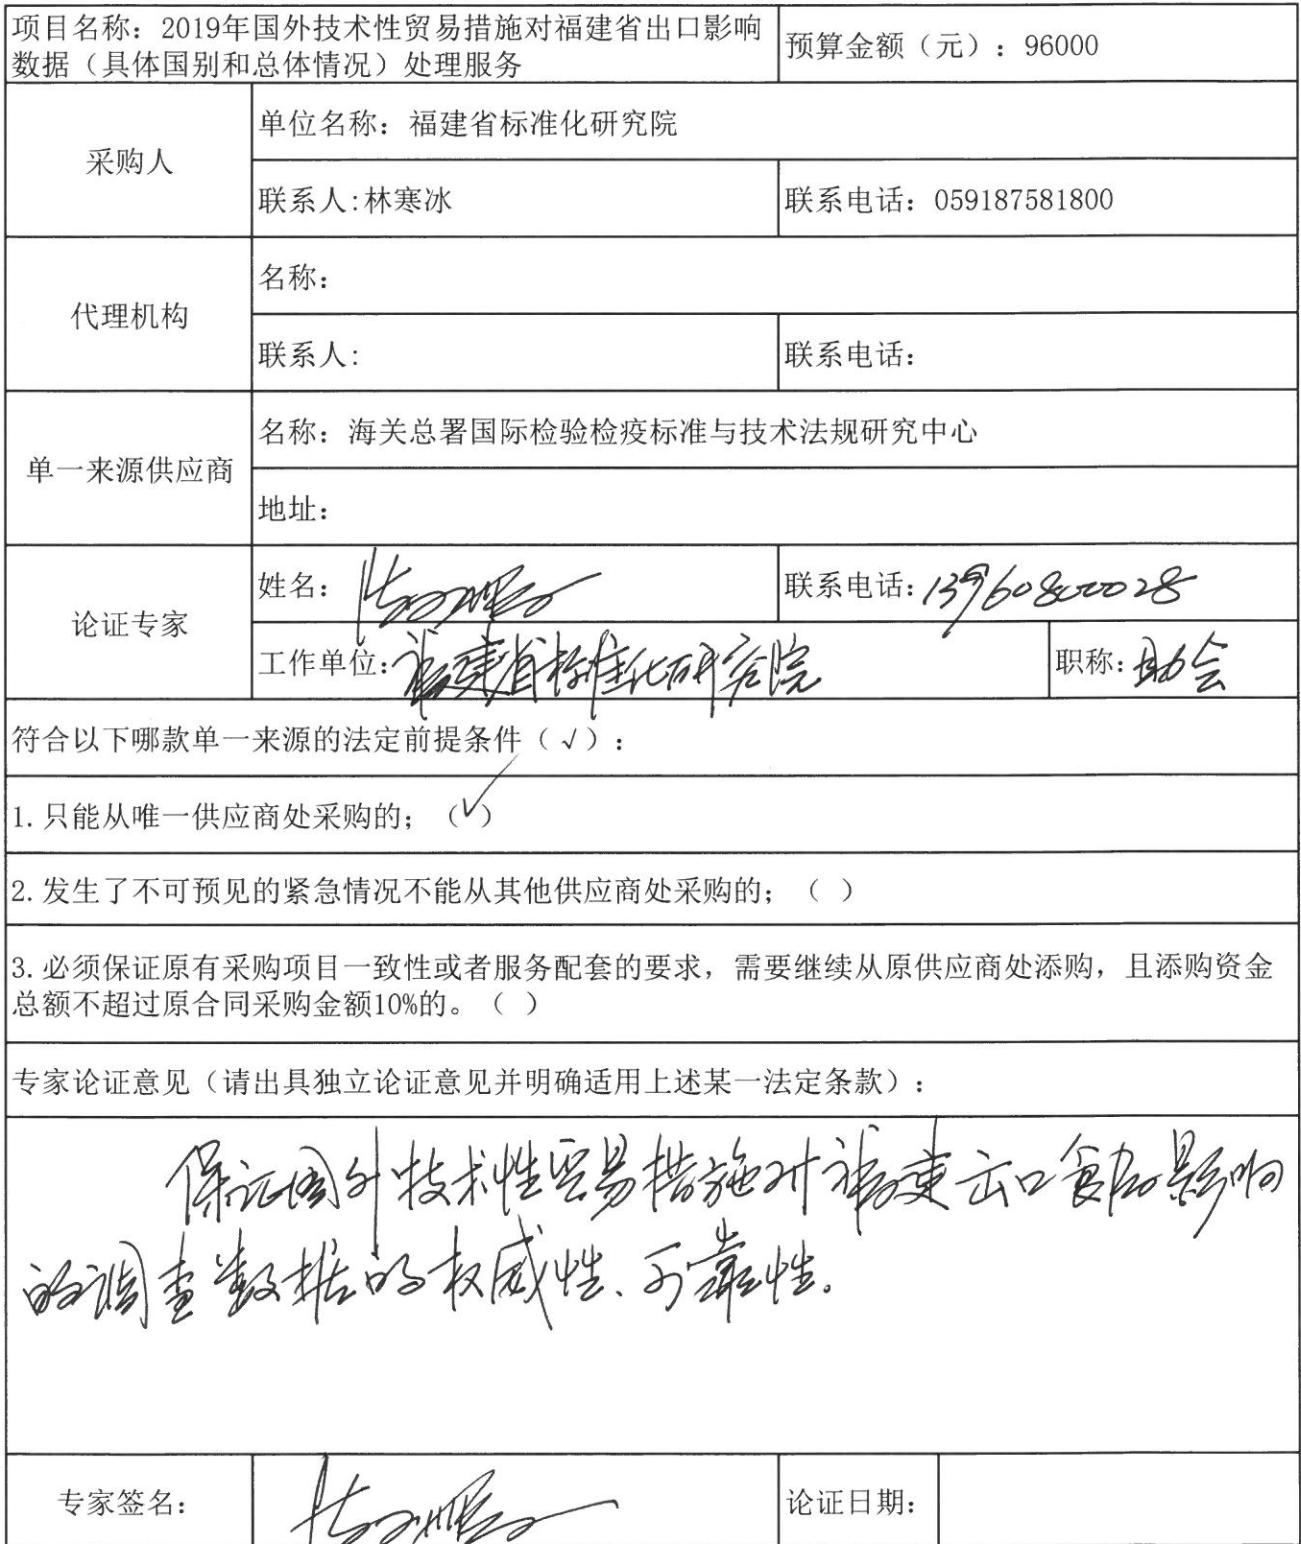 项目名称：2019年国外技术性贸易措施对福建省出口影响
数据（具体国别和总体情况）处理服务
预算金额（元）：96000
采购人
单位名称：福建省标准化研究院
联系人:林寒冰
联系电话：059187581800
代理机构
名称：
联系人:
联系电话：
单一来源供应商
名称：海关总署国际检验检疫标准与技术法规研究中心
地址：
论证专家
姓名：
联系电话：13960800028
工作单位:福建省标准化研究院
职称:助会
符合以下哪款单一来源的法定前提条件（√）：
1.只能从唯一供应商处采购的；（✓）
2.发生了不可预见的紧急情况不能从其他供应商处采购的；（ ）
3.必须保证原有采购项目一致性或者服务配套的要求，需要继续从原供应商处添购，且添购资金
总额不超过原合同采购金额10%的。（ ）
专家论证意见（请出具独立论证意见并明确适用上述某一法定条款）：
保证国外技术性贸易措施对福建出口食品影响
的调查数据的权威性、可靠性。
专家签名：
论证日期：